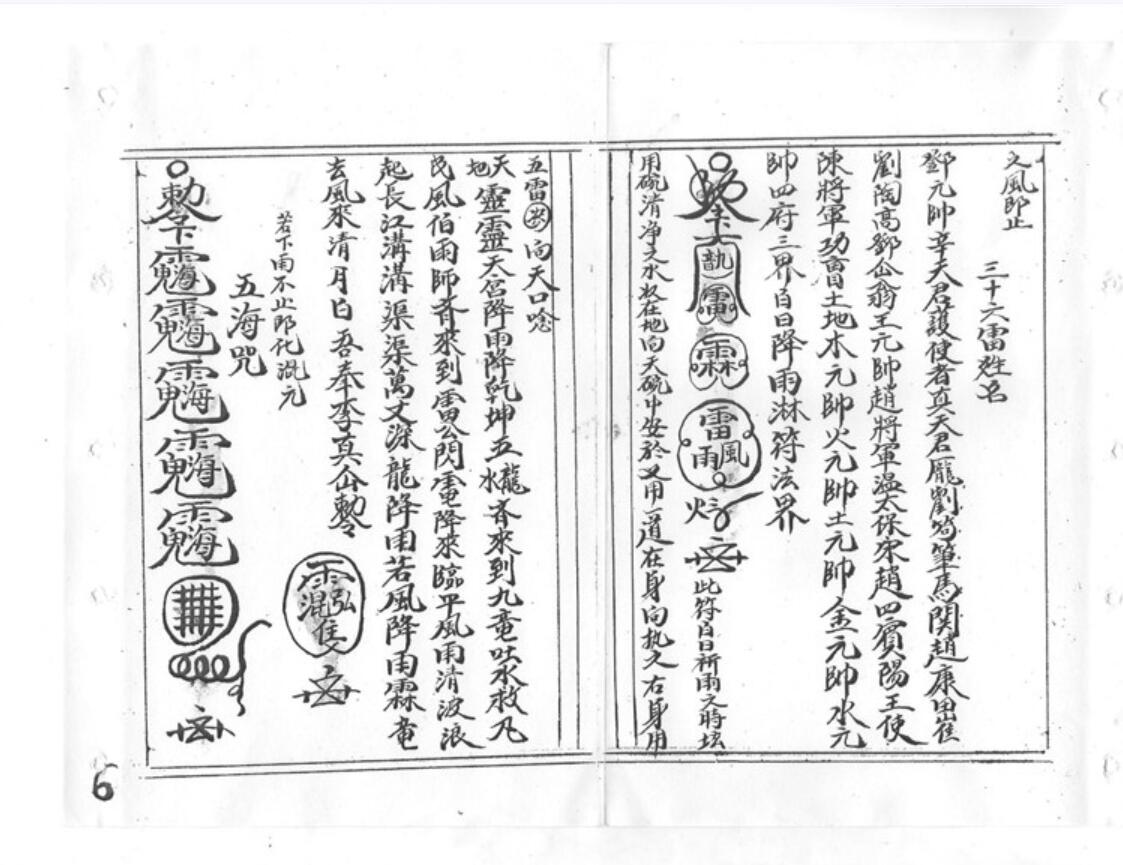 之風即止
三十六雷姓名
鄧元帥辛天君護使者真天君龐劉苟畢馬関趙康田崔
劉陶高鄧仙翁王元帥趙將軍溫太保宋趙四賓陽王使
陳將軍功曹土地木元帥火元帥土元帥金元帥水元
帥四府三界白日降雨淋符法界
此符白日祈雨之時坛
用碗清净之水放在地向天碗中安於又用一道在身向执久右身用
五雷向天口唸
天地靈靈天宮降雨降乾坤五龍水斉來到九竜吐水救凡
民風伯雨師斉來到雷公閃電降來臨平風雨清波浪
起長江溝溝渠渠萬丈深龍降雨若風降雨霖竜
去風來清月白吾奉李真仙勅令
若下雨不止即化混元
五海咒
勅令
6